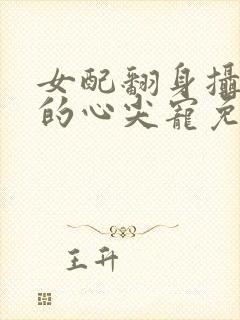 女配翻身攝
的心尖寵免
王升